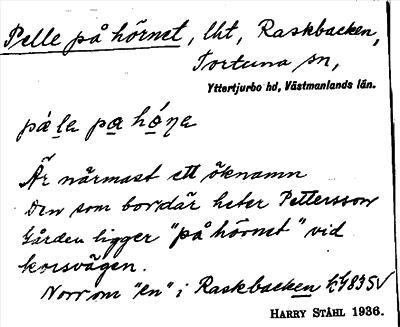 Pelle på hörnet, lht, Raskbacken,
Tortuna sn,
Yttertjurbo hd, Västmanlands län.
på hå
Är närmast ett öknamn
Den som bor där heter Pettersson
Gården ligger "på hörnet" vid
korsvägen.
Norr om "en" i Raskbacken
HARRY STÅHL 1936.